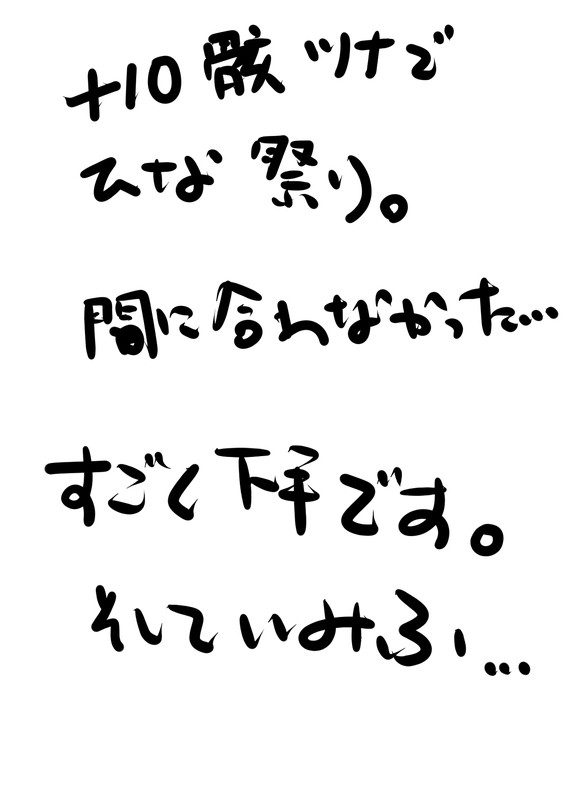 +10 骸ツナで
ひな祭り。
間に合わなかった…
すごく下手です。
そしていみふ…